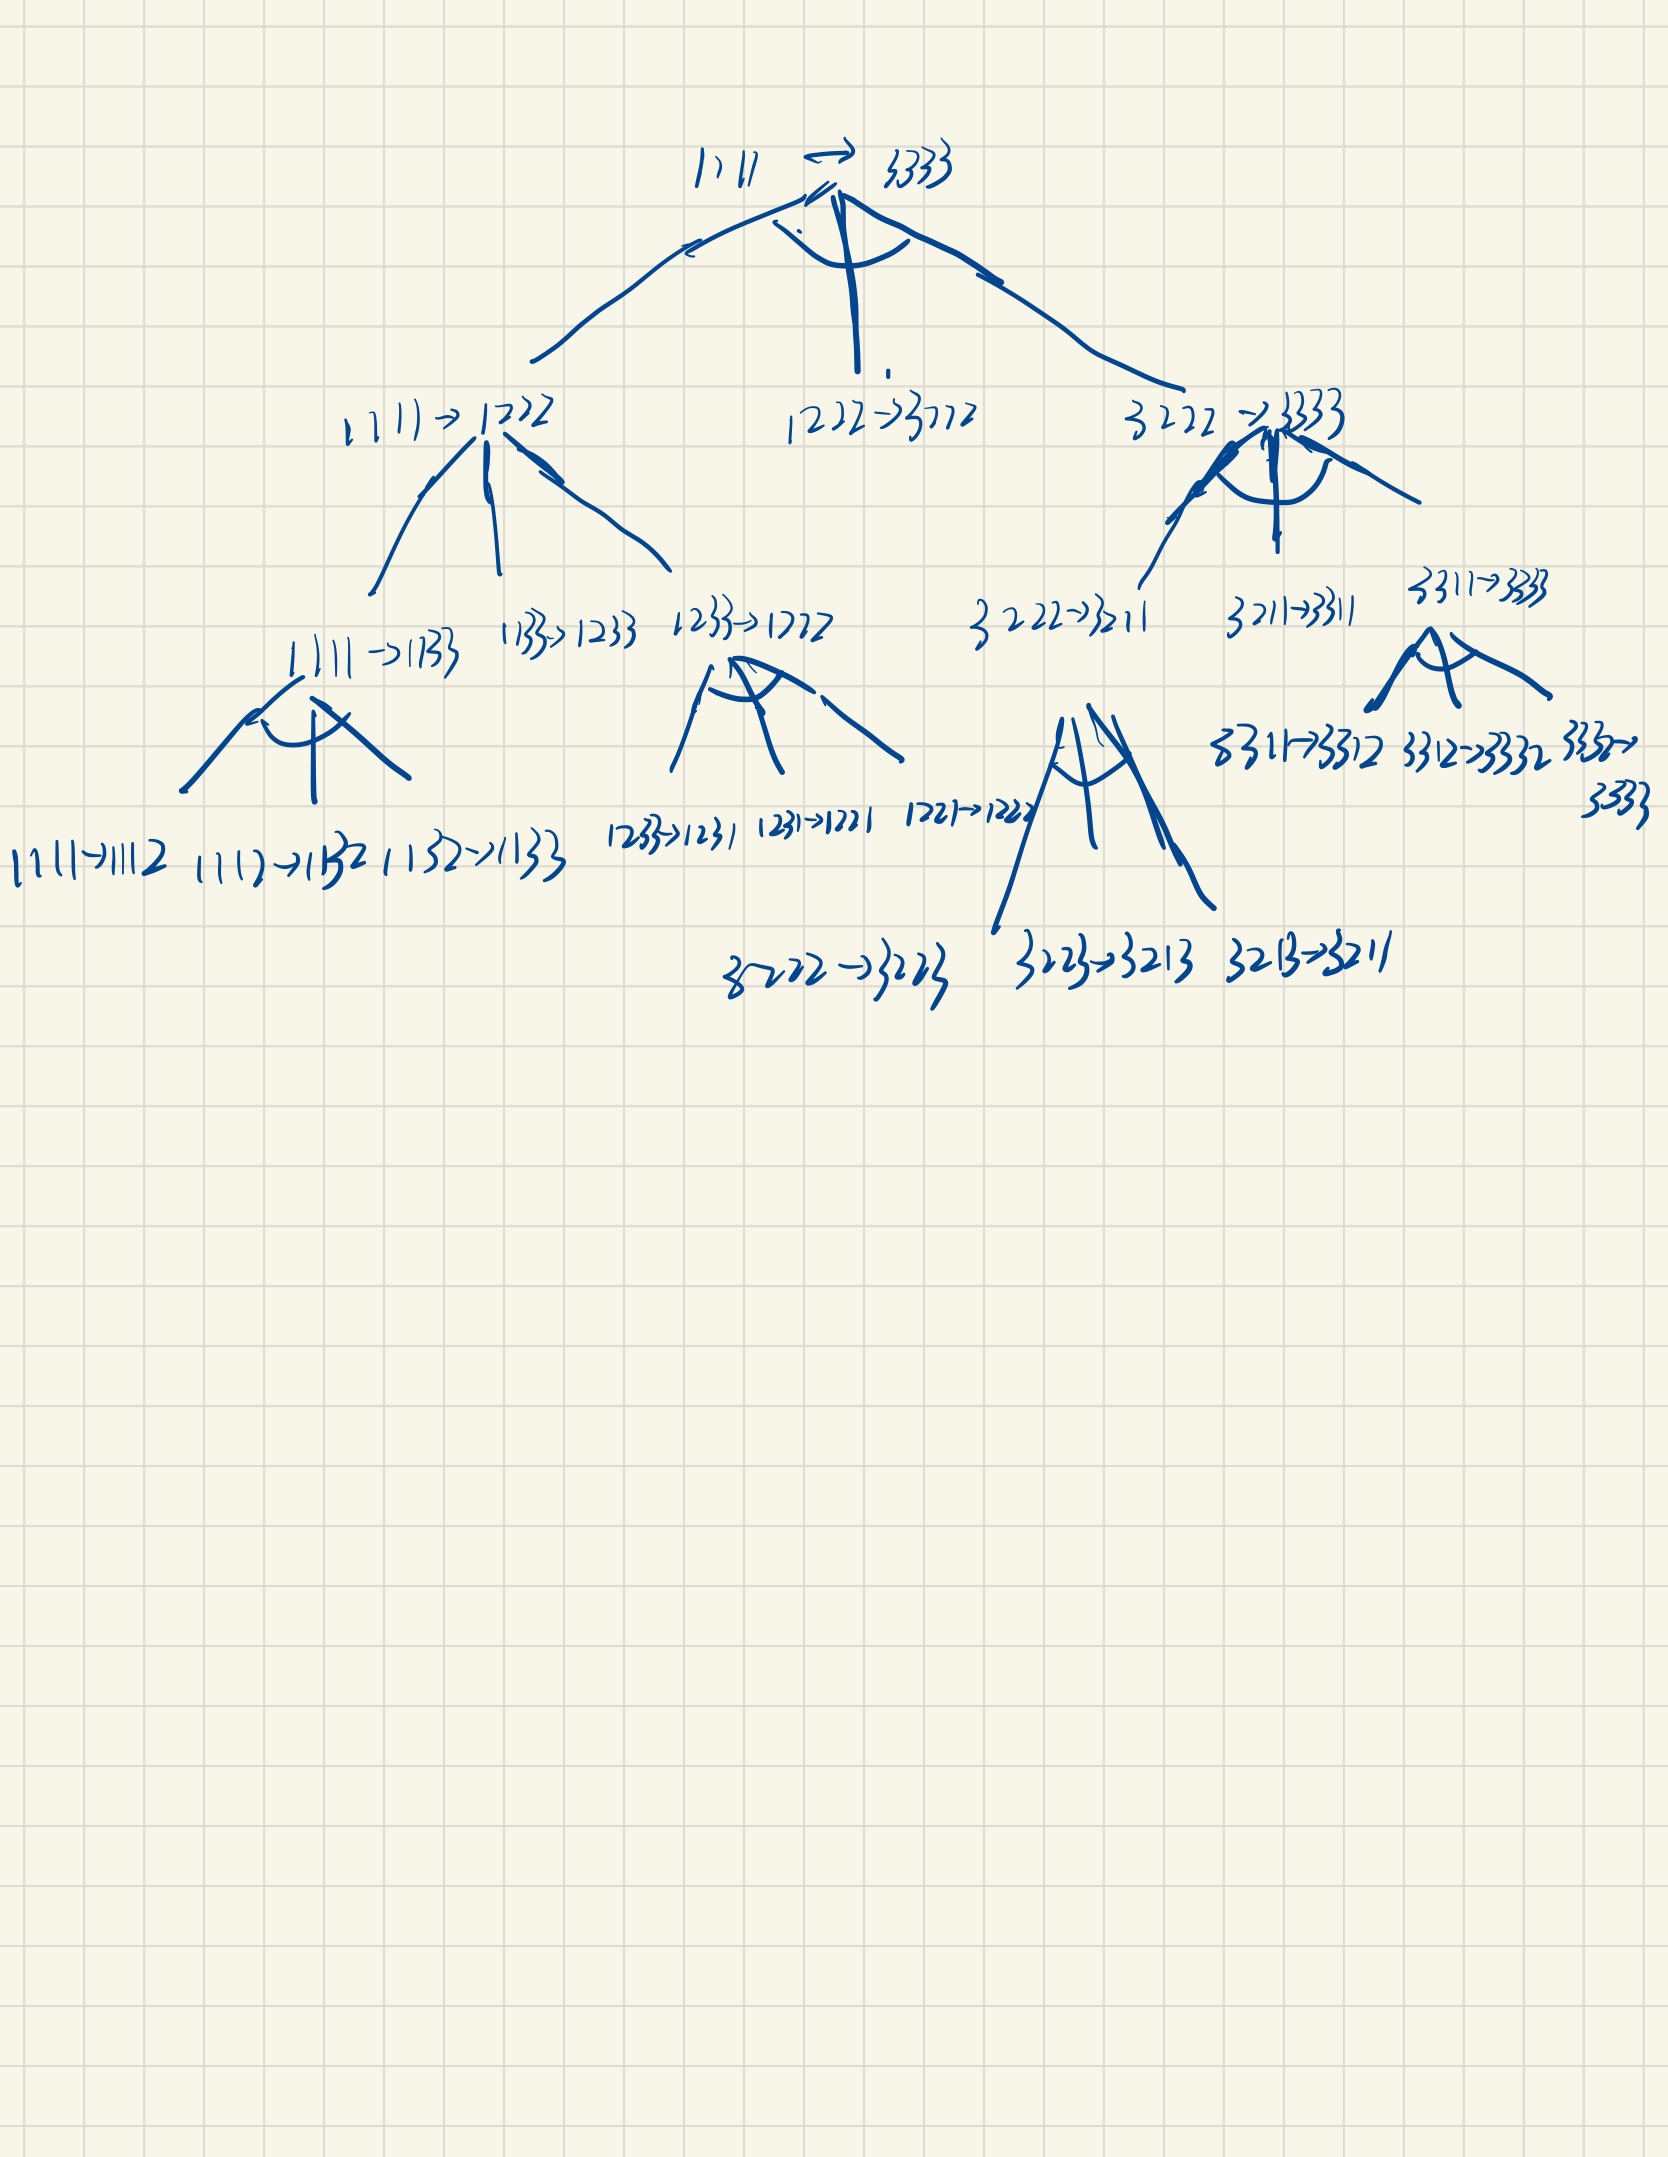 1111 ↔ 3333
1111→1222 1222→3222 3222→3333
1111→1133 1133→1233 1233→1222 3222→3211 3211→3311 3311→3333
1111→1112 1112→1132 1132→1133 1233→1231 1231→1221 1221→1222 3311→3312 3312→3332 3332→
3333
3222→3223 3223→3213 3213→3211